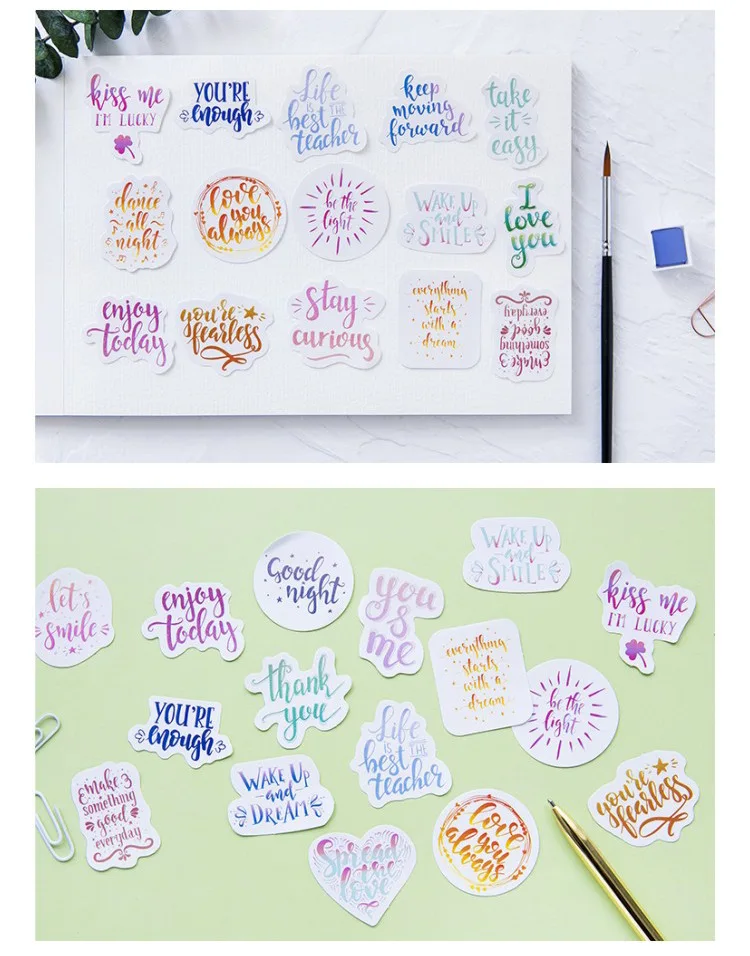 kiss me
I'M LUCKY
YOU'RE
enough
Life
IS THE
best
teacher
keep
moving
forward
take
it
easy
dance
all
night
love
you
always
be the
light
WAKE UP
and
SMILE
I
love
you
enjoy
today
you're
fearless
stay
curious
everything
starts
with a
dream
make
something
good
everyday
let's
smile
enjoy
today
Good
night
you
is
me
WAKE UP
and
SMILE
kiss me
I'M LUCKY
everything
starts
with a
dream
be the
light
thank
you
YOU'RE
enough
Life
IS THE
best
teacher
make
something
good
everyday
WAKE UP
and
DREAM
Spread
the
love
love
you
always
you're
fearless